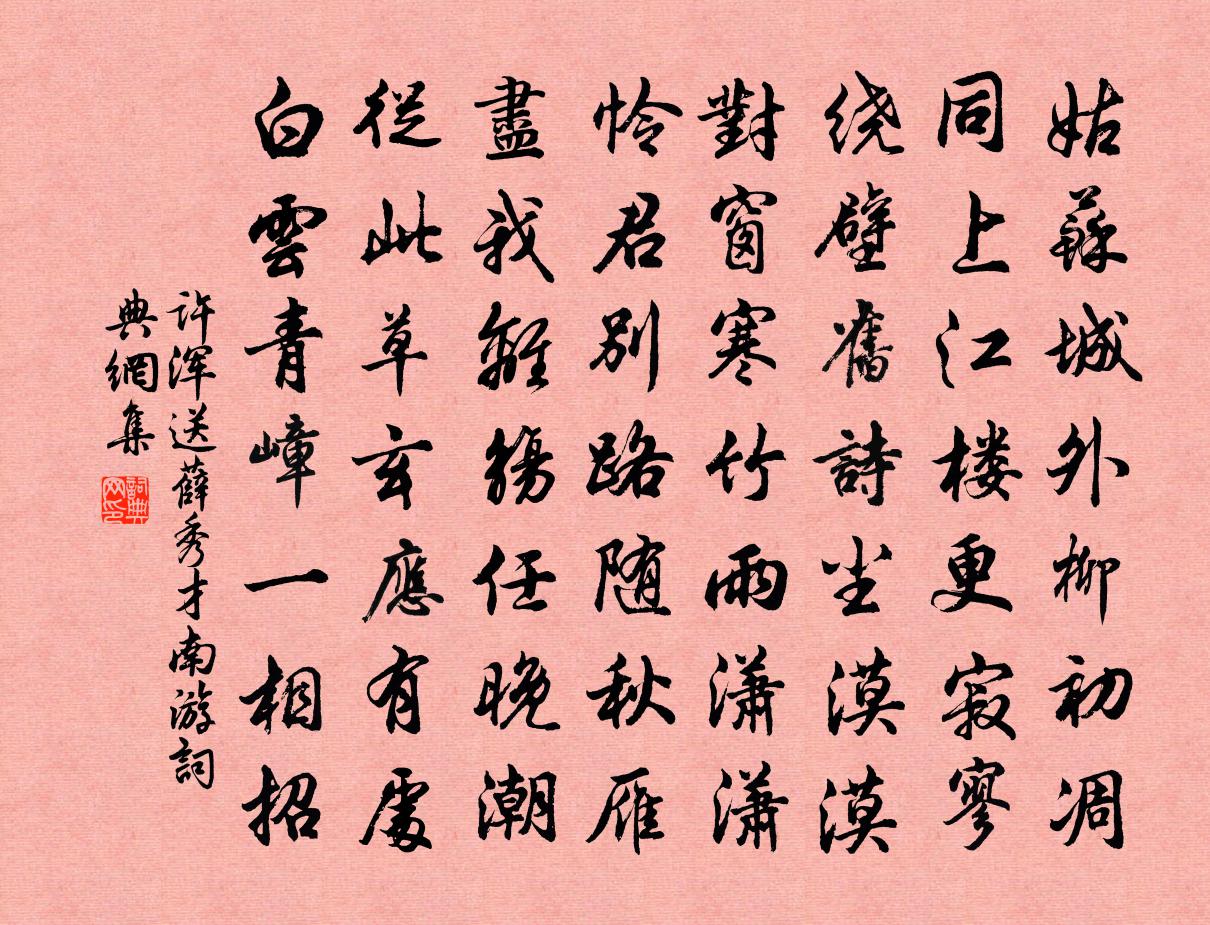 姑蘇城外柳初凋
同上江楼更寂寥
绕壁舊詩尘漠漠
對窗寒竹雨潇潇
怜君別路随秋雁
盡我離觴任晚潮
從此草玄應有處
白雲青嶂一相招
许浑送薛秀才南游詞
典網集
詞典网印